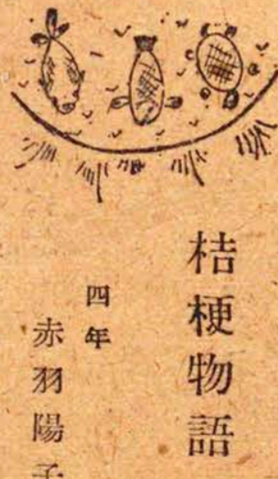 桔梗物語
四年
赤羽陽子